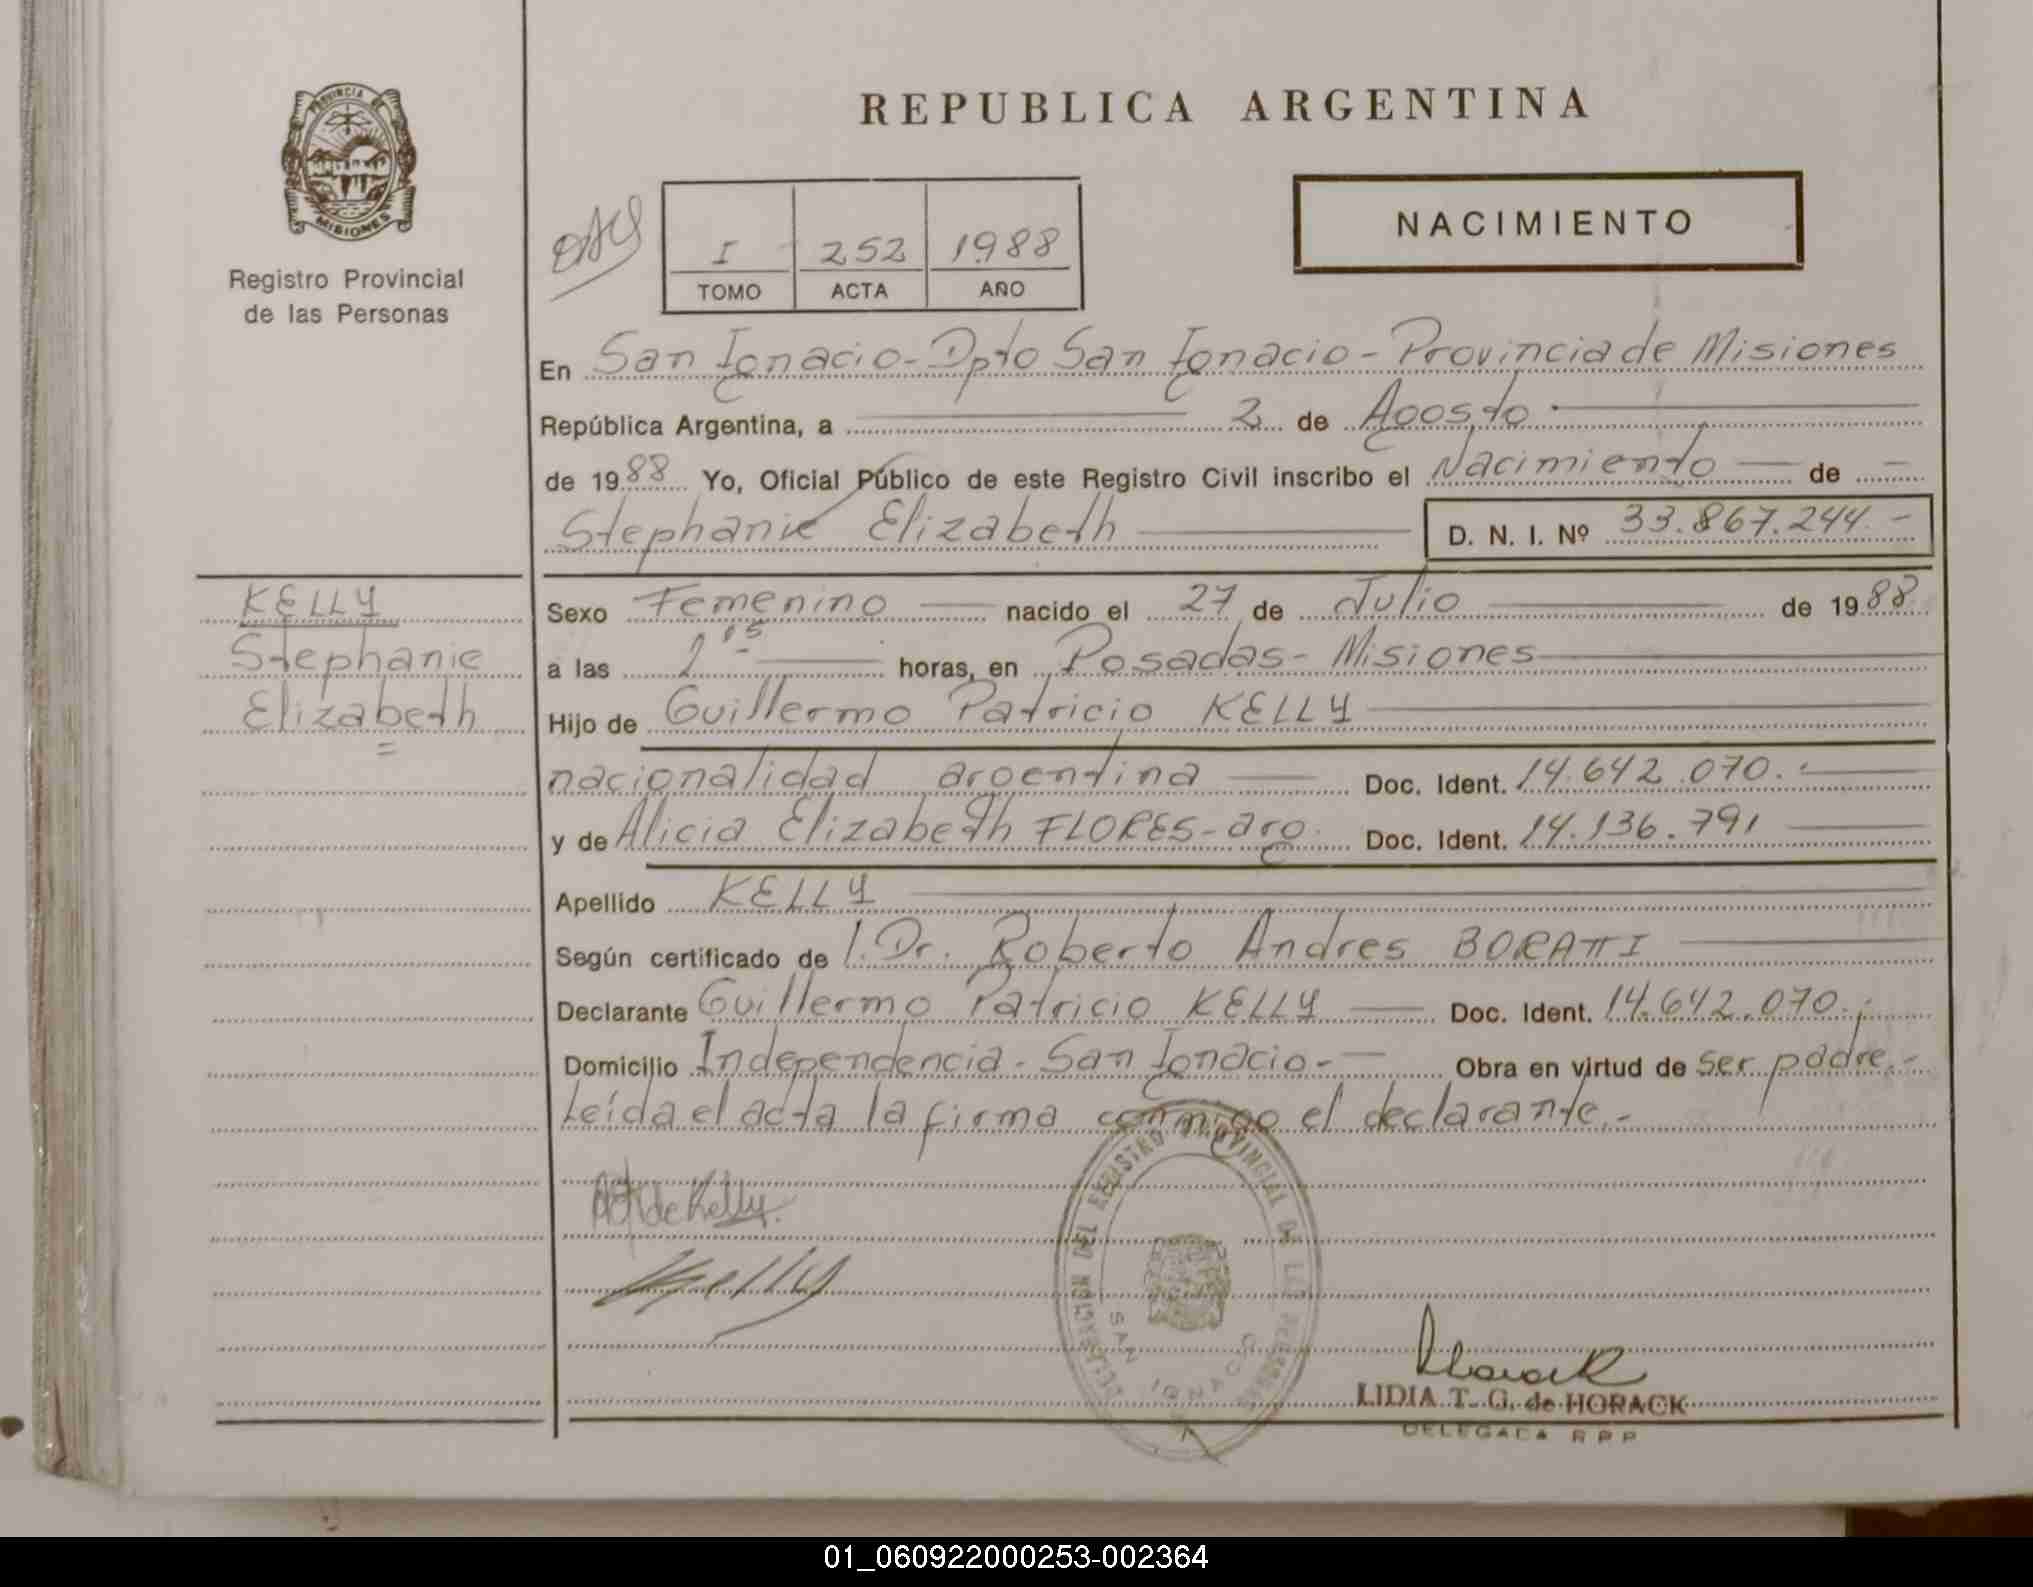 PROVINCIA DE
MISIONES
Registro Provincial
de las Personas
REPUBLICA ARGENTINA
NACIMIENTO
I 252 1988
TOMO ACTA AÑO
En San Ignacio - Dpto San Ignacio - Provincia de Misiones
República Argentina, a 2 de Agosto
de 1988 Yo, Oficial Público de este Registro Civil inscribo el Nacimiento de
Stephanie Elizabeth D. N. I. Nº 33.867.244.-
KELLY
Stephanie
Elizabeth
Sexo Femenino nacido el 27 de Julio de 1988
a las horas, en Posadas - Misiones
Hijo de Guillermo Patricio KELLY
nacionalidad argentina Doc. Ident. 14.642.070.-
y de Alicia Elizabeth FLORES - arg. Doc. Ident. 14.136.791
Apellido KELLY
Según certificado de Dr. Roberto Andres BORATTI
Declarante Guillermo Patricio KELLY Doc. Ident. 14.642.070.-
Domicilio Independencia - San Ignacio - Obra en virtud de ser padre.-
Leída el acta la firma conmigo el declarante.-
de Kelly
Kelly
DELEGACION DEL REGISTRO PROVINCIAL DE LAS PERSONAS
SAN IGNACIO
Horack
LIDIA T. G. de HORACK
DELEGADA R P P
01_060922000253-002364